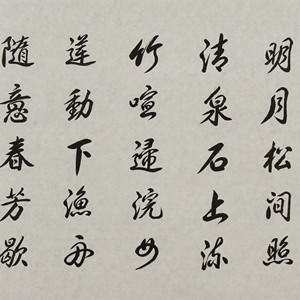 明月松间照
清泉石上流
竹喧归浣女
莲动下渔舟
随意春芳歇